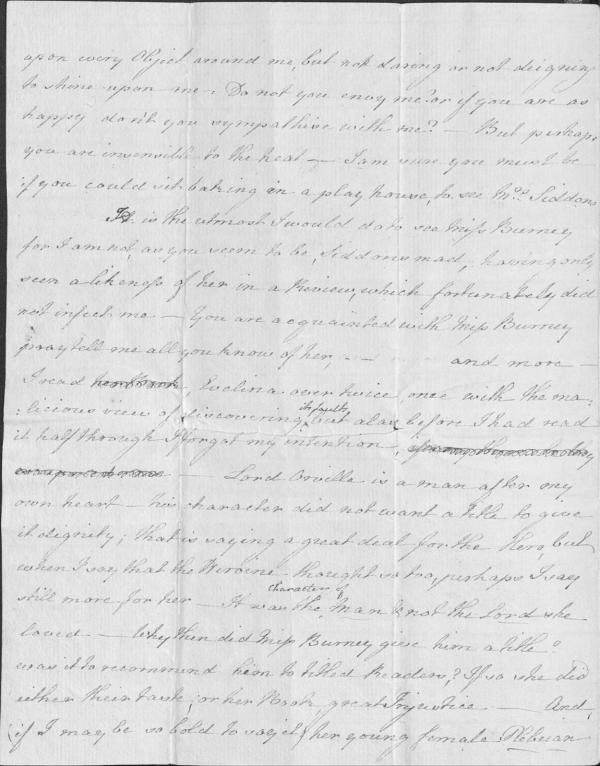 upon every Object around me, but not daring or not deigning
to shine upon me. Do not you envy me? or if you are as
happy don't you sympathise with me? — But perhaps
you are insensible to the heat — I am sure you must be
if you could sit baking in a play house, to see Mrs. Siddons
It is the utmost I would do to see Miss Burney
for I am not, as you seem to be, Siddons mad, having only
seen a likeness of her in a Review, which fortunately did
not infect me — You are acquainted with Miss Burney
pray tell me all you know of her, — and more —
I read her Book, Evelina over twice, once with the ma-
:licious view of discovering its faults, but alas before I had read
it half through I forgot my intention,
— Lord Orville is a man after my
own heart — his character did not want a title to give
it dignity; that is saying a great deal for the Hero, but
when I say that the Heroine thought so too, perhaps I say
still more for her — It was the character of the Man & not the Lord she
loved — Why then did Miss Burney give him a title?
was it to recommend him to titled Readers? If so she did
either their taste, or her Book, great Injustice — And,
(if I may be so bold to say it) her young female Plebeian